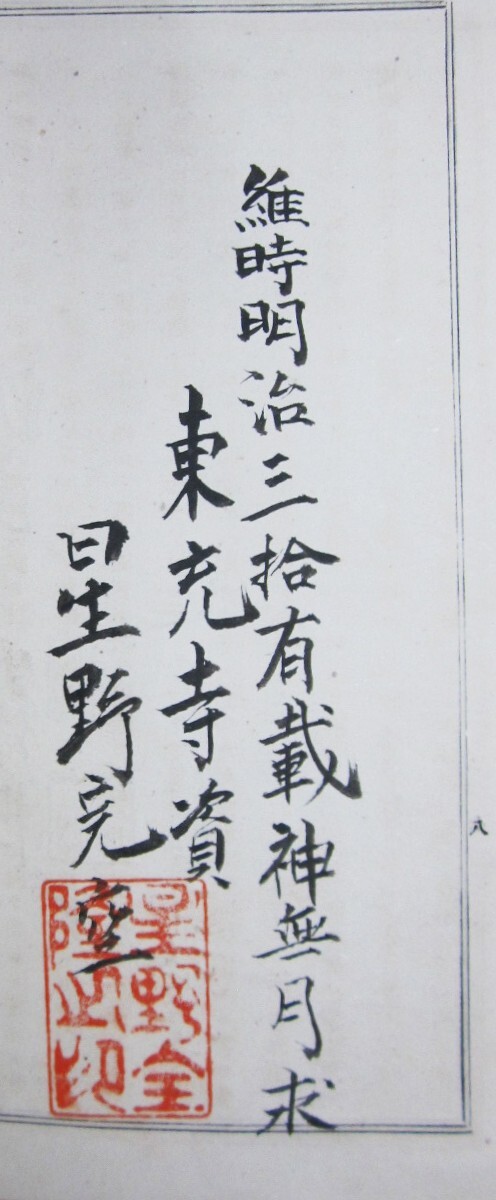 維時明治三拾有載神無月求
東充寺資
星野完空
星野全
之印
八